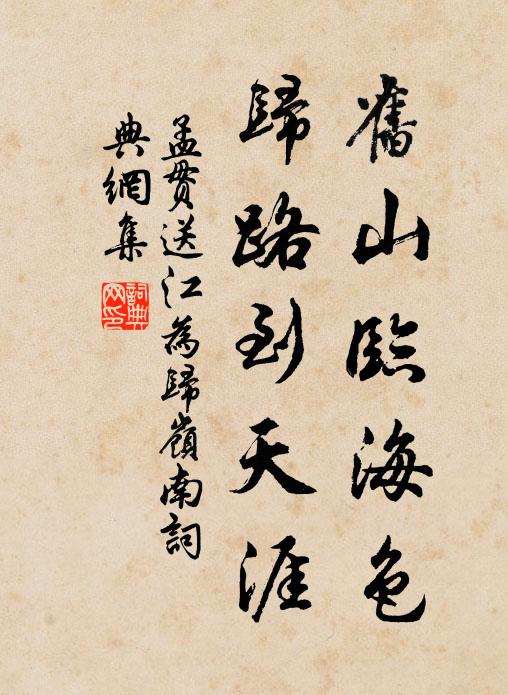 舊山臨海色
歸路到天涯
孟貫送江為歸嶺南詞
典網集
詞典網印